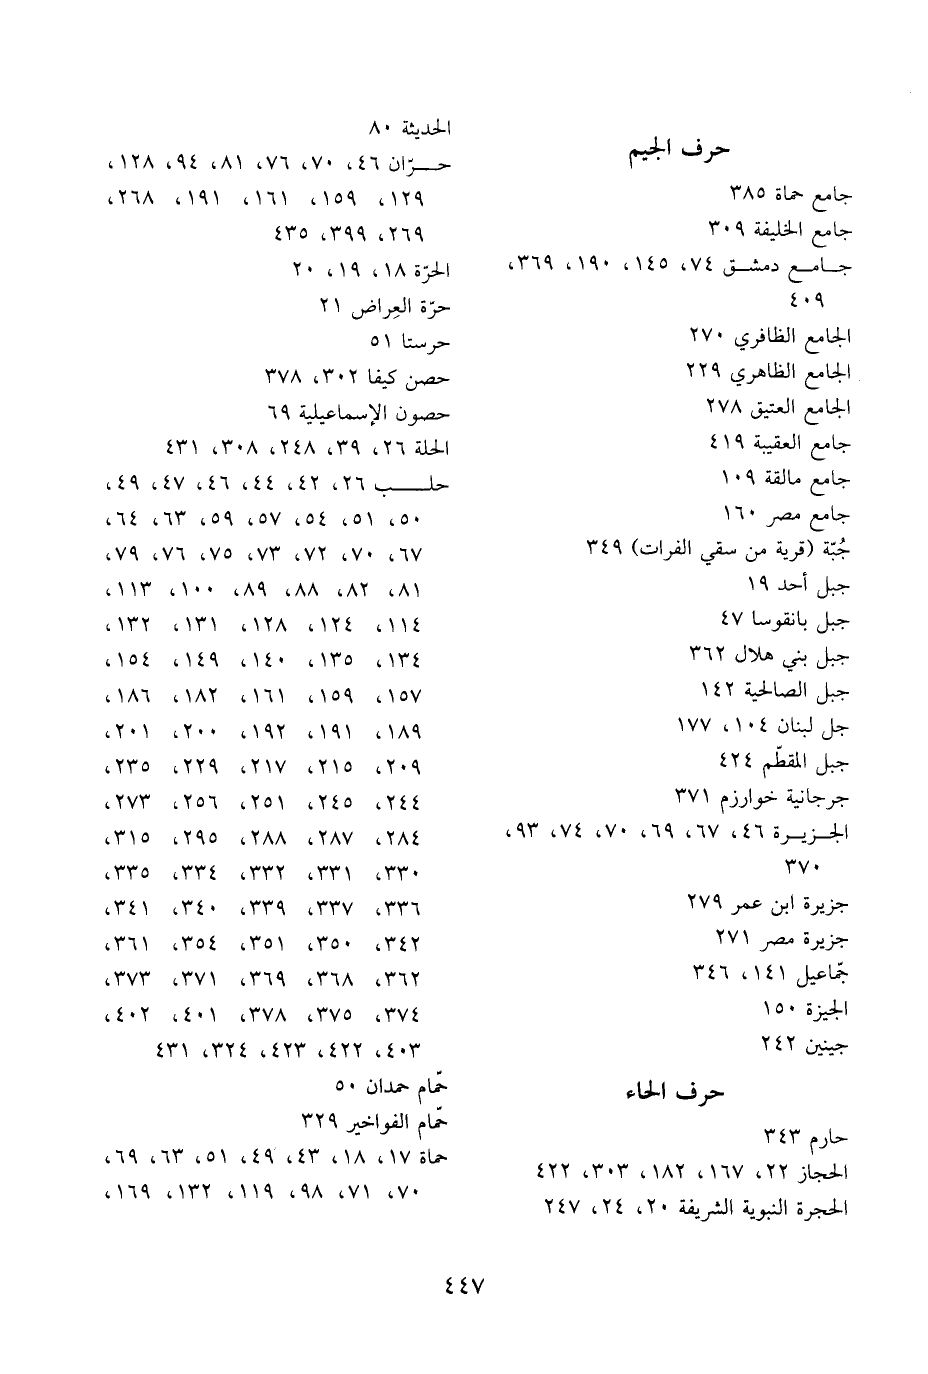 حرف الجيم
جامع حماة ٣٨٥
جامع الخليفة ٣٠٩
جـامـع دمشـق ٧٤، ١٤٥، ١٩٠، ٣٦٩،
٤٠٩
الجامع الظافري ٢٧٠
الجامع الظاهري ٢٢٩
الجامع العتيق ٢٧٨
جامع العقيبة ٤١٩
جامع مالقة ١٠٩
جامع مصر ١٦٠
جُبّة (قرية من سقي الفرات) ٣٤٩
جبل أحد ١٩
جبل بانقوسا ٤٧
جبل بني هلال ٣٦٢
جبل الصالحية ١٤٢
جل لبنان ١٠٤، ١٧٧
جبل المقطّم ٤٢٤
جرجانية خوارزم ٣٧١
الجـزيـرة ٤٦، ٦٧، ٦٩، ٧٠، ٧٤، ٩٣،
٣٧٠
جزيرة ابن عمر ٢٧٩
جزيرة مصر ٢٧١
جمّاعيل ١٤١، ٣٤٦
الجيزة ١٥٠
جينين ٢٤٢
حرف الحاء
حارم ٣٤٣
الحجاز ٢٢، ١٦٧، ١٨٢، ٣٠٣، ٤٢٢
الحجرة النبوية الشريفة ٢٠، ٢٤، ٢٤٧
الحديثة ٨٠
حـــرّان ٤٦، ٧٠، ٧٦، ٨١، ٩٤، ١٢٨،
١٢٩، ١٥٩، ١٦١، ١٩١، ٢٦٨،
٢٦٩، ٣٩٩، ٤٣٥
الحرّة ١٨، ١٩، ٢٠
حرّة العِراض ٢١
حرستا ٥١
حصن كيفا ٣٠٢، ٣٧٨
حصون الإسماعيلية ٦٩
الحلة ٢٦، ٣٩، ٢٤٨، ٣٠٨، ٤٣١
حلــــب ٢٦، ٤٢، ٤٤، ٤٦، ٤٧، ٤٩،
٥٠، ٥١، ٥٤، ٥٧، ٥٩، ٦٣، ٦٤،
٦٧، ٧٠، ٧٢، ٧٣، ٧٥، ٧٦، ٧٩،
٨١، ٨٢، ٨٨، ٨٩، ١٠٠، ١١٣،
١١٤، ١٢٤، ١٢٨، ١٣١، ١٣٢،
١٣٤، ١٣٥، ١٤٠، ١٤٩، ١٥٤،
١٥٧، ١٥٩، ١٦١، ١٨٢، ١٨٦،
١٨٩، ١٩١، ١٩٢، ٢٠٠، ٢٠١،
٢٠٩، ٢١٥، ٢١٧، ٢٢٩، ٢٣٥،
٢٤٤، ٢٤٥، ٢٥١، ٢٥٦، ٢٧٣،
٢٨٤، ٢٨٧، ٢٨٨، ٢٩٥، ٣١٥،
٣٣٠، ٣٣١، ٣٣٢، ٣٣٤، ٣٣٥،
٣٣٦، ٣٣٧، ٣٣٩، ٣٤٠، ٣٤١،
٣٤٢، ٣٥٠، ٣٥١، ٣٥٤، ٣٦١،
٣٦٢، ٣٦٨، ٣٦٩، ٣٧١، ٣٧٣،
٣٧٤، ٣٧٥، ٣٧٨، ٤٠١، ٤٠٢،
٤٠٣، ٤٢٢، ٤٢٣، ٣٢٤، ٤٣١
حمّام حمدان ٥٠
حمّام الفواخير ٣٢٩
حماة ١٧، ١٨، ٤٣، ٤٩، ٥١، ٦٣، ٦٩،
٧٠، ٧١، ٩٨، ١١٩، ١٣٢، ١٦٩،
٤٤٧